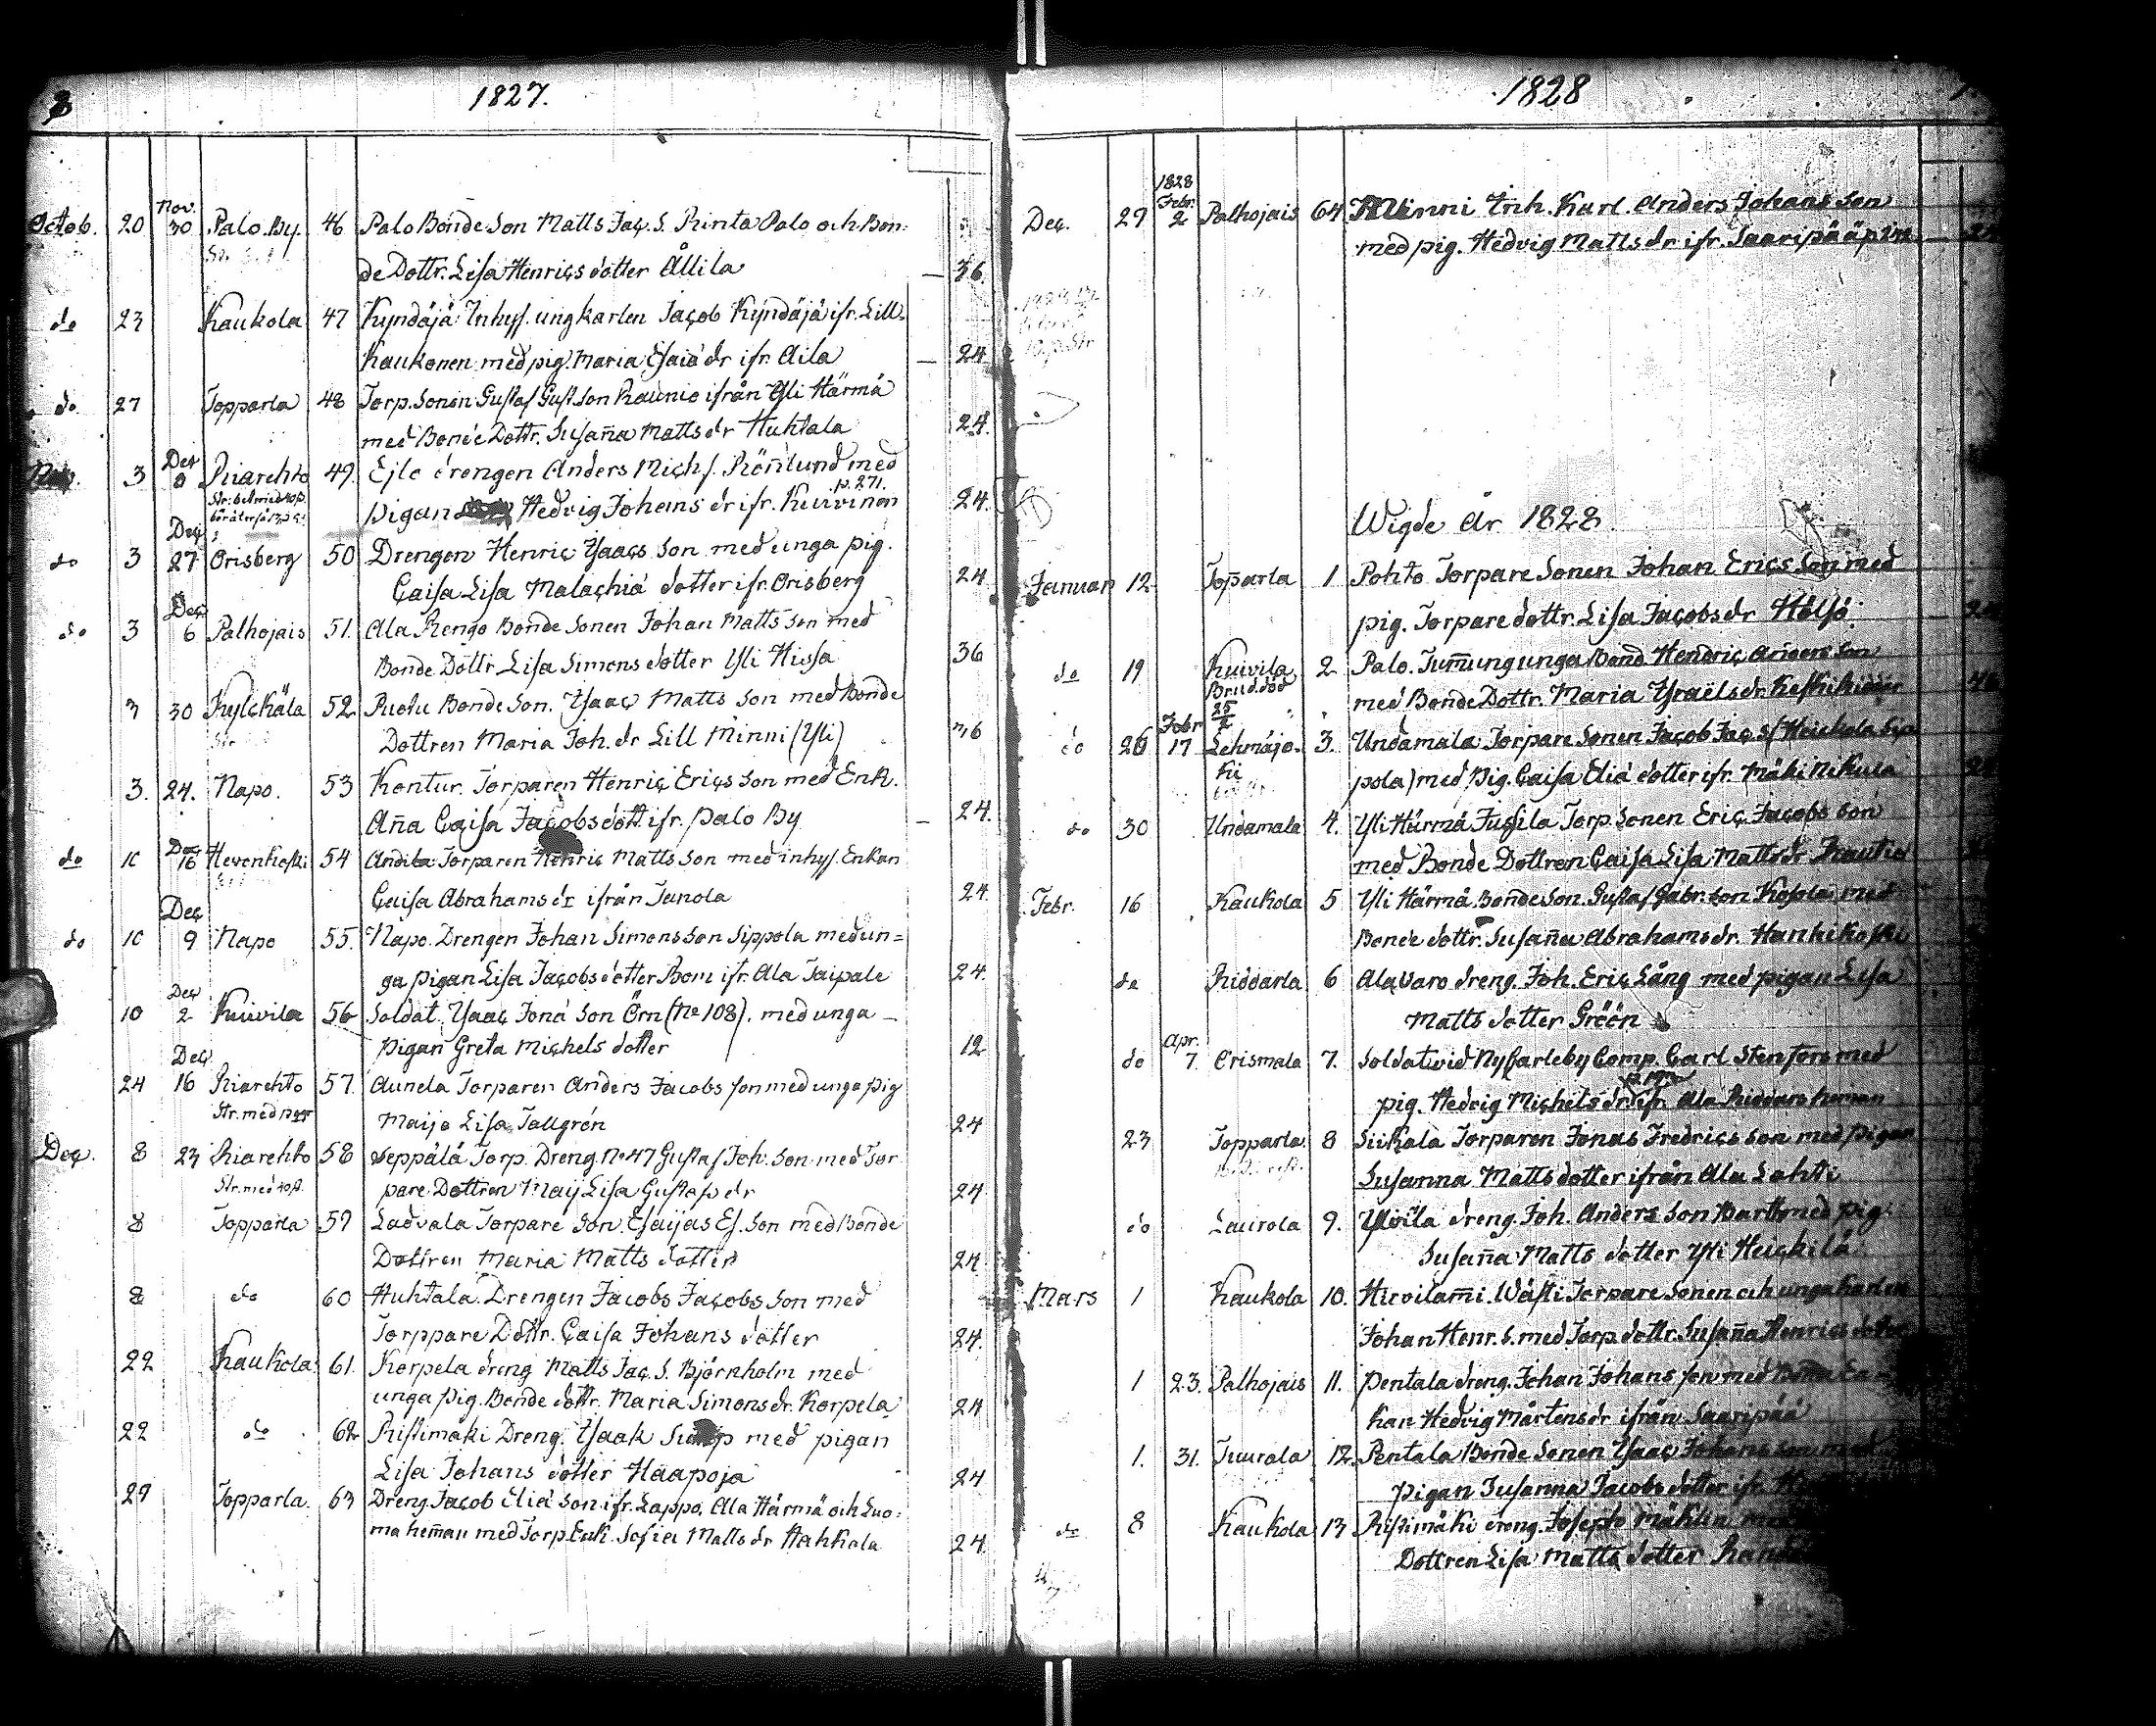 1827.
Octob. 20 Nov. 30 Palo By. 46 Palo Bonde Son Matts Jaç. S. Rinta Palo och Bon:
de Dottr. Lisa Henriçs dotter Ållila — 36.
do 23 Kaukola 47 Kyndäjä Inhys. ungkarlen Jaçob Kyndäjä ifr. Lill
Kaukonen med pig. Maria Esaiä dr ifr. Aila — 24.
do 27 Topparla 48 Torp. Sonen Gustaf Gust. Son Raunio ifrån Yli Härmä
med Bonde Dottr. Susan̄a Matts dr Huhtala 24.
3 Riarehto 49. drengen Anders Miçh s. Rön̄lund med
pigan Hedvig Johans dr ifr. Kuivinen p. 271. 24.
do 3 Deç 27 Orisberg 50 Drengen Henriç Ysaaçs Son med unga pig.
Çaisa Lisa Malaçhiä dotter ifr. Orisberg 24
do 3 Deç 6 Palhojais 51. Ala Rengo Bonde Sonen Johan Matts Son med
Bonde Dottr Lisa Simons dotter Yli Hissa 36
3 30 Kylçkäla 52 Ruotu Bonde Son. Ysaaç Matts Son med Bonde
Dottren Maria Joh. dr Lill Minni (Yli) 36
3. 24. Napo. 53 Kontur. Torparen Henriç Eriçs Son med Enk.
An̄a Çaisa Jaçobs dott. ifr. Palo By — 24.
do 10 Deç 16 Hevonkoski 54 Torparen Henriç Matts Son med inhys. Enkan
Çaisa Abrahams dr ifrån Tanola 24.
do 10 Deç 9 Napo 55. Napo. Drengen Johan Simons Son Sippola med un=
ga pigan Lisa Jaçobs dotter Bom ifr. Ala Taipale 24.
10 Deç 2 Kuivila 56 Soldat. Ysaaç Jonä Son Örn (No 108). med unga —
pigan Greta Miçhels dotter 12
24 Deç 16 Riarehto 57. Aunela Torparen Anders Jacobs son med unga pig
Str. med
Maija Lisa Tallgrén 24
Deç. 8 23 Riarehto 58 Seppälä Torp. Dreng. No 47 Gustaf Joh. Son med Tor
Str. med
pare Dottren Maij Lisa Gustafs dr 24
8 Topparla 59 Ladvala Torpare Son. Esaijas Es. Son med Bonde
Dottren Maria Matts dotter 24
8 do 60 Huhtala. Drengen Jacobs Jaçobs Son med
Torppare Dottr. Çaisa Johans dotter 24.
22 Kaukola. 61. Korpela dreng Matts Jaç. S. Björnholm med
unga pig. Bonde dottr. Maria Simons dr. Korpela 24
22 do 62 Ristimäki Dreng. Ysaak med pigan
Lisa Johans dotter Haapoja 24
29 Topparla. 63 Dreng. Jacob Eliä Son ifr. Lappo, Ala Härmä och Luo:
ma hem̄an med Torp. Enk. Sofia Matts dr Hahkala 24.
1828
Deç. 29 1828 Febr. 2 Palhojais 64 Minni Inh. Karl. Anders Johans Son
med pig. Hedvig Matts dr ifr. Saaripää
Wigde År 1828.
Januari 12 Toparla 1 Pohto Torpare Sonen Johan Eriçs Son med
pig. Torpare dottr. Lisa Jaçobs dr Hölsö.
do 19 Kuivila 2 Palo. unga Bond. Hendriç Anders Son
Brud. död
med Bonde Dottr. Maria Ysraëls dr
25/2
do 26 Febr 17 Lehmäjo- 3. Undamala Torpare Sonen Jaçob Jaç. S (Heickola Sip
ki
pola) med Pig. Çaisa Eliä dotter ifr. Mäki Nikula
do 30 Undamala 4. Yli Härmä Jussila Torp Sonen Eriç Jacobs Son
med Bonde Dottren Çaisa Lisa Matts dr Rautio
Febr. 16 Kaukola 5 Yli Härmä Bonde Son. Gustaf Gabr. son Kojola med
Bonde dottr. Susan̄a Abrahams dr. Hanhikoski
do Riddarla 6 Ala Varo dreng. Joh. Eriç Lång med pigan Lisa
Matts dotter Gröön
do Apr. 7. Orismala 7. Soldat vid NyÇarleby Comp. Çarl Stenfors med
pig. Hedvig Miçhels dr ifr. Ala Riddaro heman
23 Topparla 8 Siikala Torparen Jonas Fredriçs Son med pigan
Susanna Matts dotter ifrån Ala Lahti
do Laurola 9. dreng. Joh. Anders Son Bartt med pig.
Susan̄a Matts dotter Yli Heiçkilä
Mars 1 Kaukola 10. Hirvilam̄i. Wästi Torpare Sonen och unga karlen
Johan Henr. S. med Torp. dottr. Susan̄a Henriçs dotter
1 23. Palhojais 11. Pentala dreng. Johan Johans son med Bonde En
kan Hedvig Mårtens dr ifrån Saaripää
1. 31. Tuurala 12. Pentala Bonde Sonen Ysaaç Johans son med
pigan Susanna Jacobs dotter ifr.
do 8 Kaukola 13 Ristimäki dreng. Joseph Mäklin med
Dottren Lisa Matts dotter